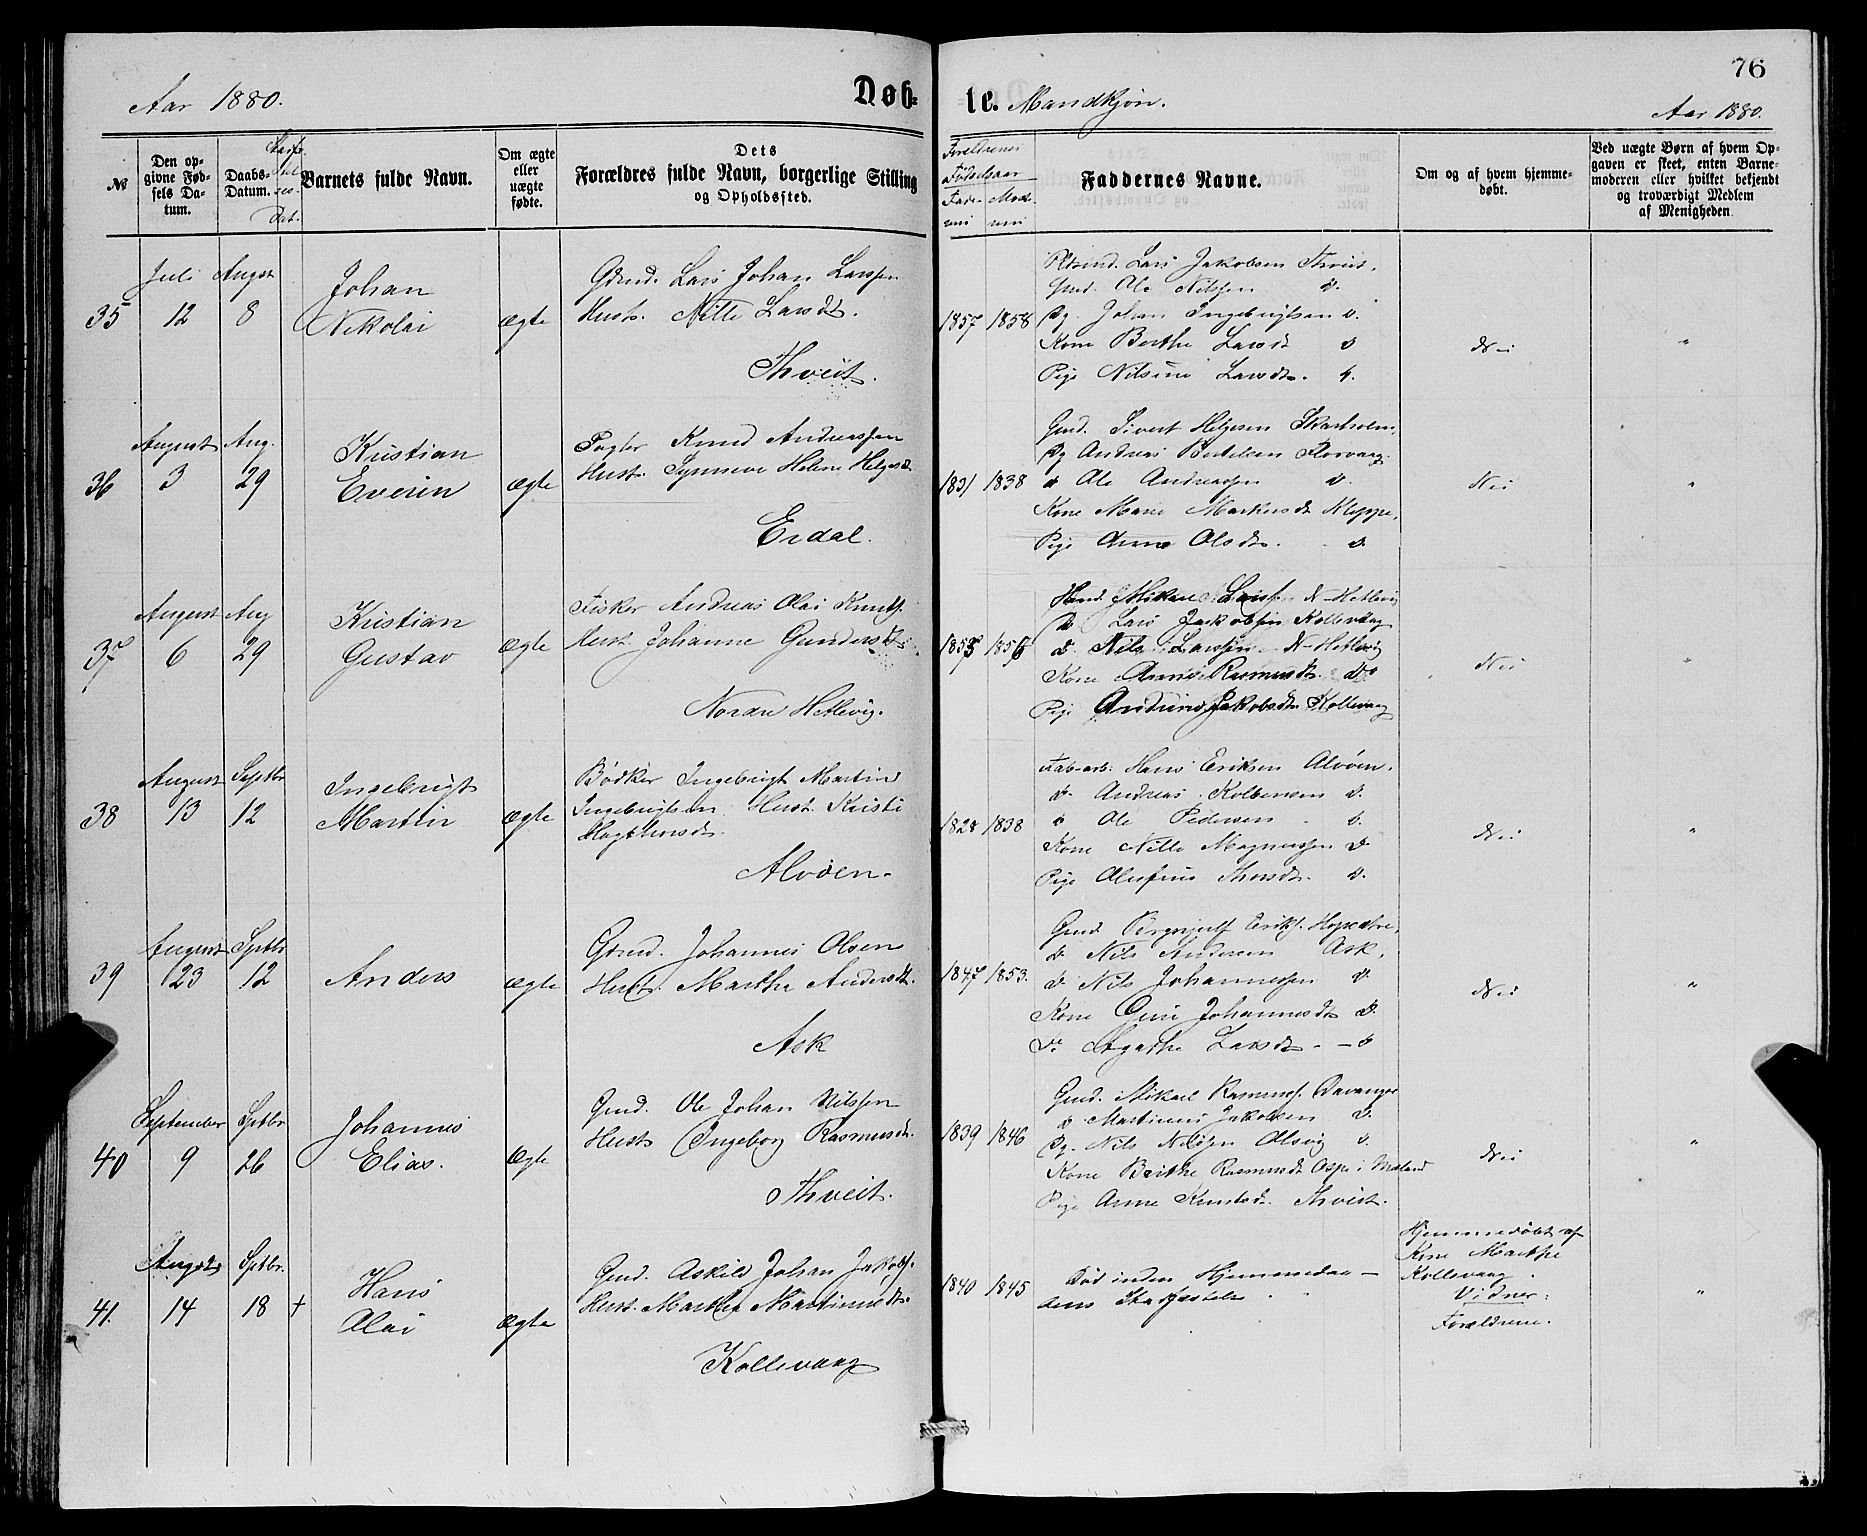 76
Aar 1880.
Døb-
te. Mandkjøn.
Aar 1880.
№
Den op-
givne Fød-
sels Da-
tum.
Daabs-
Datum.
Dat.
Barnets fulde Navn.
Om ægte
eller
uægte
fødte.
Dets
Forældres fulde Navn, borgerlige Stilling
og Opholdssted.
Forældrenes
Fødselsaar
Fade-
rens
Mode-
rens
Faddernes Navne.
Om og af hvem hjemme-
døbt.
Ved uægte Børn af hvem Op-
gaven er skeet, enten Barne-
moderen eller hvilket bekjendt
og troværdigt Medlem
af Menigheden.
35
Juli
12
August
8
Johan
Nikolai
Ægte
Grmd. Lars Johan Larssen
Hust. Nille Larsdt.
Thveit.
1857 1858
Lars Jakobsen Thveit.
Gmd. Ole Nilssen d.
Pg. Johan Ingebrigtsen d.
Kone Berthe Larsdt d
Pige Nilsine Larsdt.
Nei
"
36
August
3
Aug.
29
Kristian
Everin
Ægte
Knud Andreassen
Hust. Synneve Helene Helgesd.
Erdal.
1831 1838
Gmd. Sivert Helgesen Skarholm.
Pg Andreas Bertelsen Florvaag.
d Ole Andreassen d.
Kone Marie Markusdt Kleppe.
Pige Anne Olsdt. d.
Nei
"
37
August
6
Aug
29
Kristian
Gustav
Ægte
Fisker Andreas Olai Knuts.
Hust. Johanne Gundersdt.
Nordre Hetlevig.
1855 1856
Lars Jakobsen Kollevaag
d. Nils Larssen N-Hetlevig
Kone Anne Rasmusdt. do
Pige Andrine Jakobsdt. Kollevaag
Nei
"
38
August
13
Septbr
12
Ingebrigt
Martin
Ægte
Bødker Ingebrigt Martin
Ingebrigtsen Hust. Kristi
Alvøen.
1828 1838
Fab-arb. Hans Eriksen Alvøen.
d. Andreas Kolbensen d.
d Ole Pedersen d.
Kone Nille Magnussen d
Pige Thorsdt. d.
Nei
"
39
August
23
Septbr
12
Anders
Ægte
Grmd. Johannes Olsen
Hust. Marthe Andersdt.
Ask
1847 1853.
Gmd. Eriks.
d Nils Andersen Ask.
d. Nils Johannessen d
Kone Guri Johannesdt d.
d. Agathe Larsdt. - d
Nei
"
40
September
9
Septbr
26
Johannes
Elias.
Ægte
Gmd. Ole Johan Nilssen
Hust. Ingeborg Rasmusdt.
Thveit.
1839 1846
Gmd. Mikael Rasmuss. Davanger
d Martinus Jakobsen d.
Pg. Nils Nilsen Alsvig d.
Kone Berthe Rasmusdt Aspe i Meland
Pige Anne Knutsdt. Thveit.
Nei
"
41.
August
14
Septbr.
18
+
Hans
Olai
Ægte
Gmd. Askild Johan Jakobs.
Hust. Marthe Martinusdt.
Kollevaag
1840 1845
Død inden Hjemmedaa-
bens Stadfæstelse
Hjemmedøbt af
Kone Marthe
Kollevaag.
Vidner:
Forældrene.
"